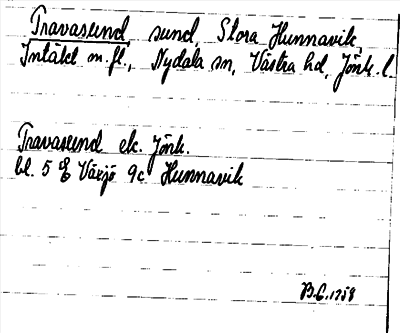 Travasund sund, Stora Hunnavik,
Intäkt m.fl., Nydala sn, Västra hd, Jönk. l.
Travasund ek. Jönk.
bl. 5 E Växjö 9c Hunnavik
B.C. 1958